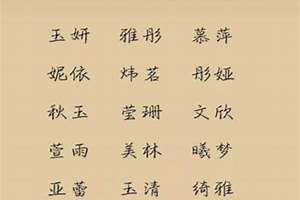 玉妍 雅彤 慕萍
妮依 炜茗 彤娅
秋玉 莹珊 文欣
萱雨 美林 曦梦
亚蕾 玉清 绮雅